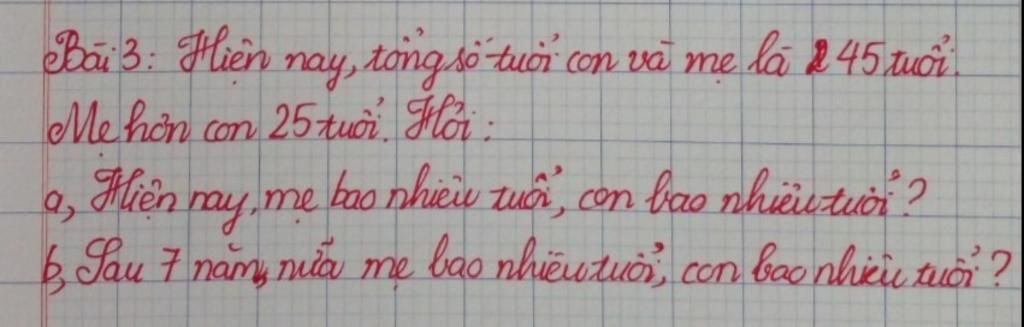 Bài 3: Hiện nay, tổng số tuổi con và mẹ là 45 tuổi.
Mẹ hơn con 25 tuổi. Hỏi:
a, Hiện nay, mẹ bao nhiêu tuổi, con bao nhiêu tuổi?
b, Sau 7 năm nữa mẹ bao nhiêu tuổi, con bao nhiêu tuổi?